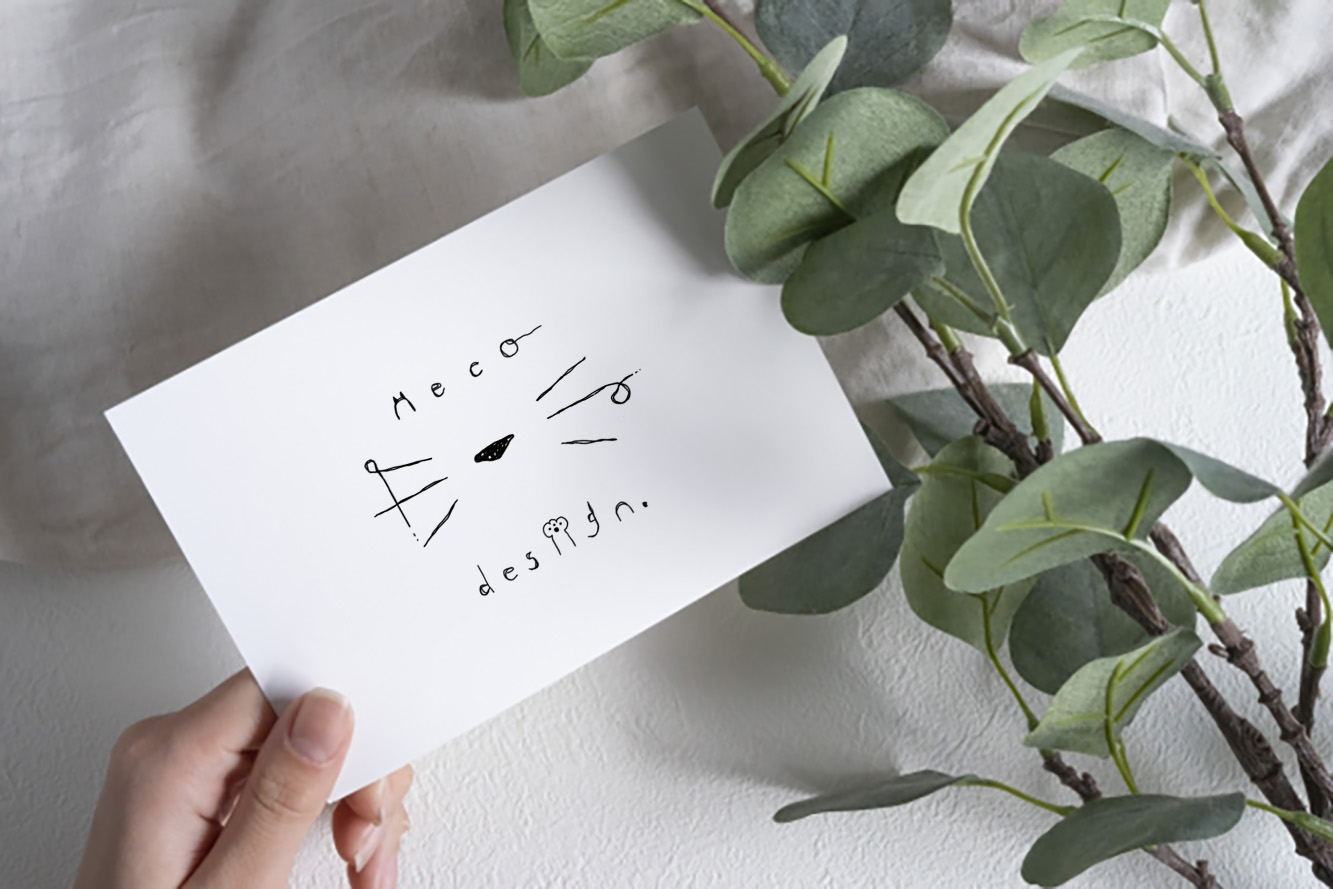 neco
design.